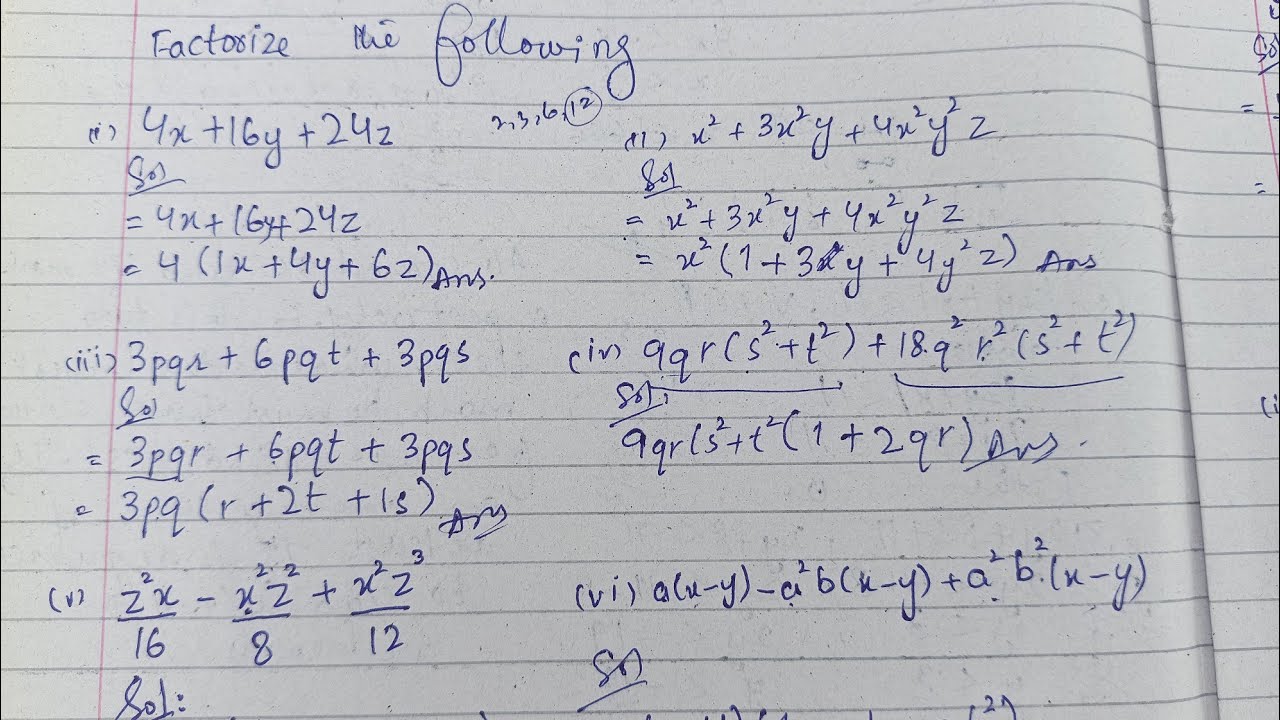 Factorize the following
(i) 4x+16y+24z
Sol
= 4x+16y+24z
= 4(1x+4y+6z) Ans.
2,3,6,12
(ii) x²+3x²y+4x²y²z
Sol
= x²+3x²y+4x²y²z
= x²(1+3y+4y²z) Ans
(iii) 3pqr + 6pqt + 3pqs
Sol
= 3pqr + 6pqt + 3pqs
= 3pq(r+2t+1s) Ans
(iv) 9qr(s²+t²)+18q²r²(s²+t²)
Sol.
9qr(s²+t²(1+2qr) Ans.
(v) z²x/16 - x²z²/8 + x²z³/12
Sol:
(vi) a(x-y)-a²b(x-y)+a²b²(x-y)
Sol